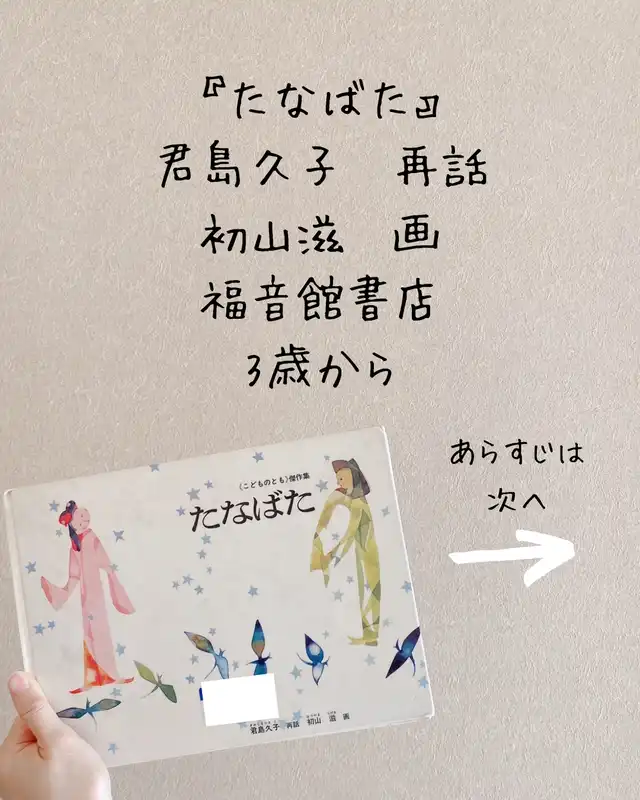 『たなばた』
君島久子 再話
初山滋 画
福音館書店
3歳から
あらすじは
次へ
《こどものとも》傑作集
たなばた
君島久子 再話 初山 滋 画